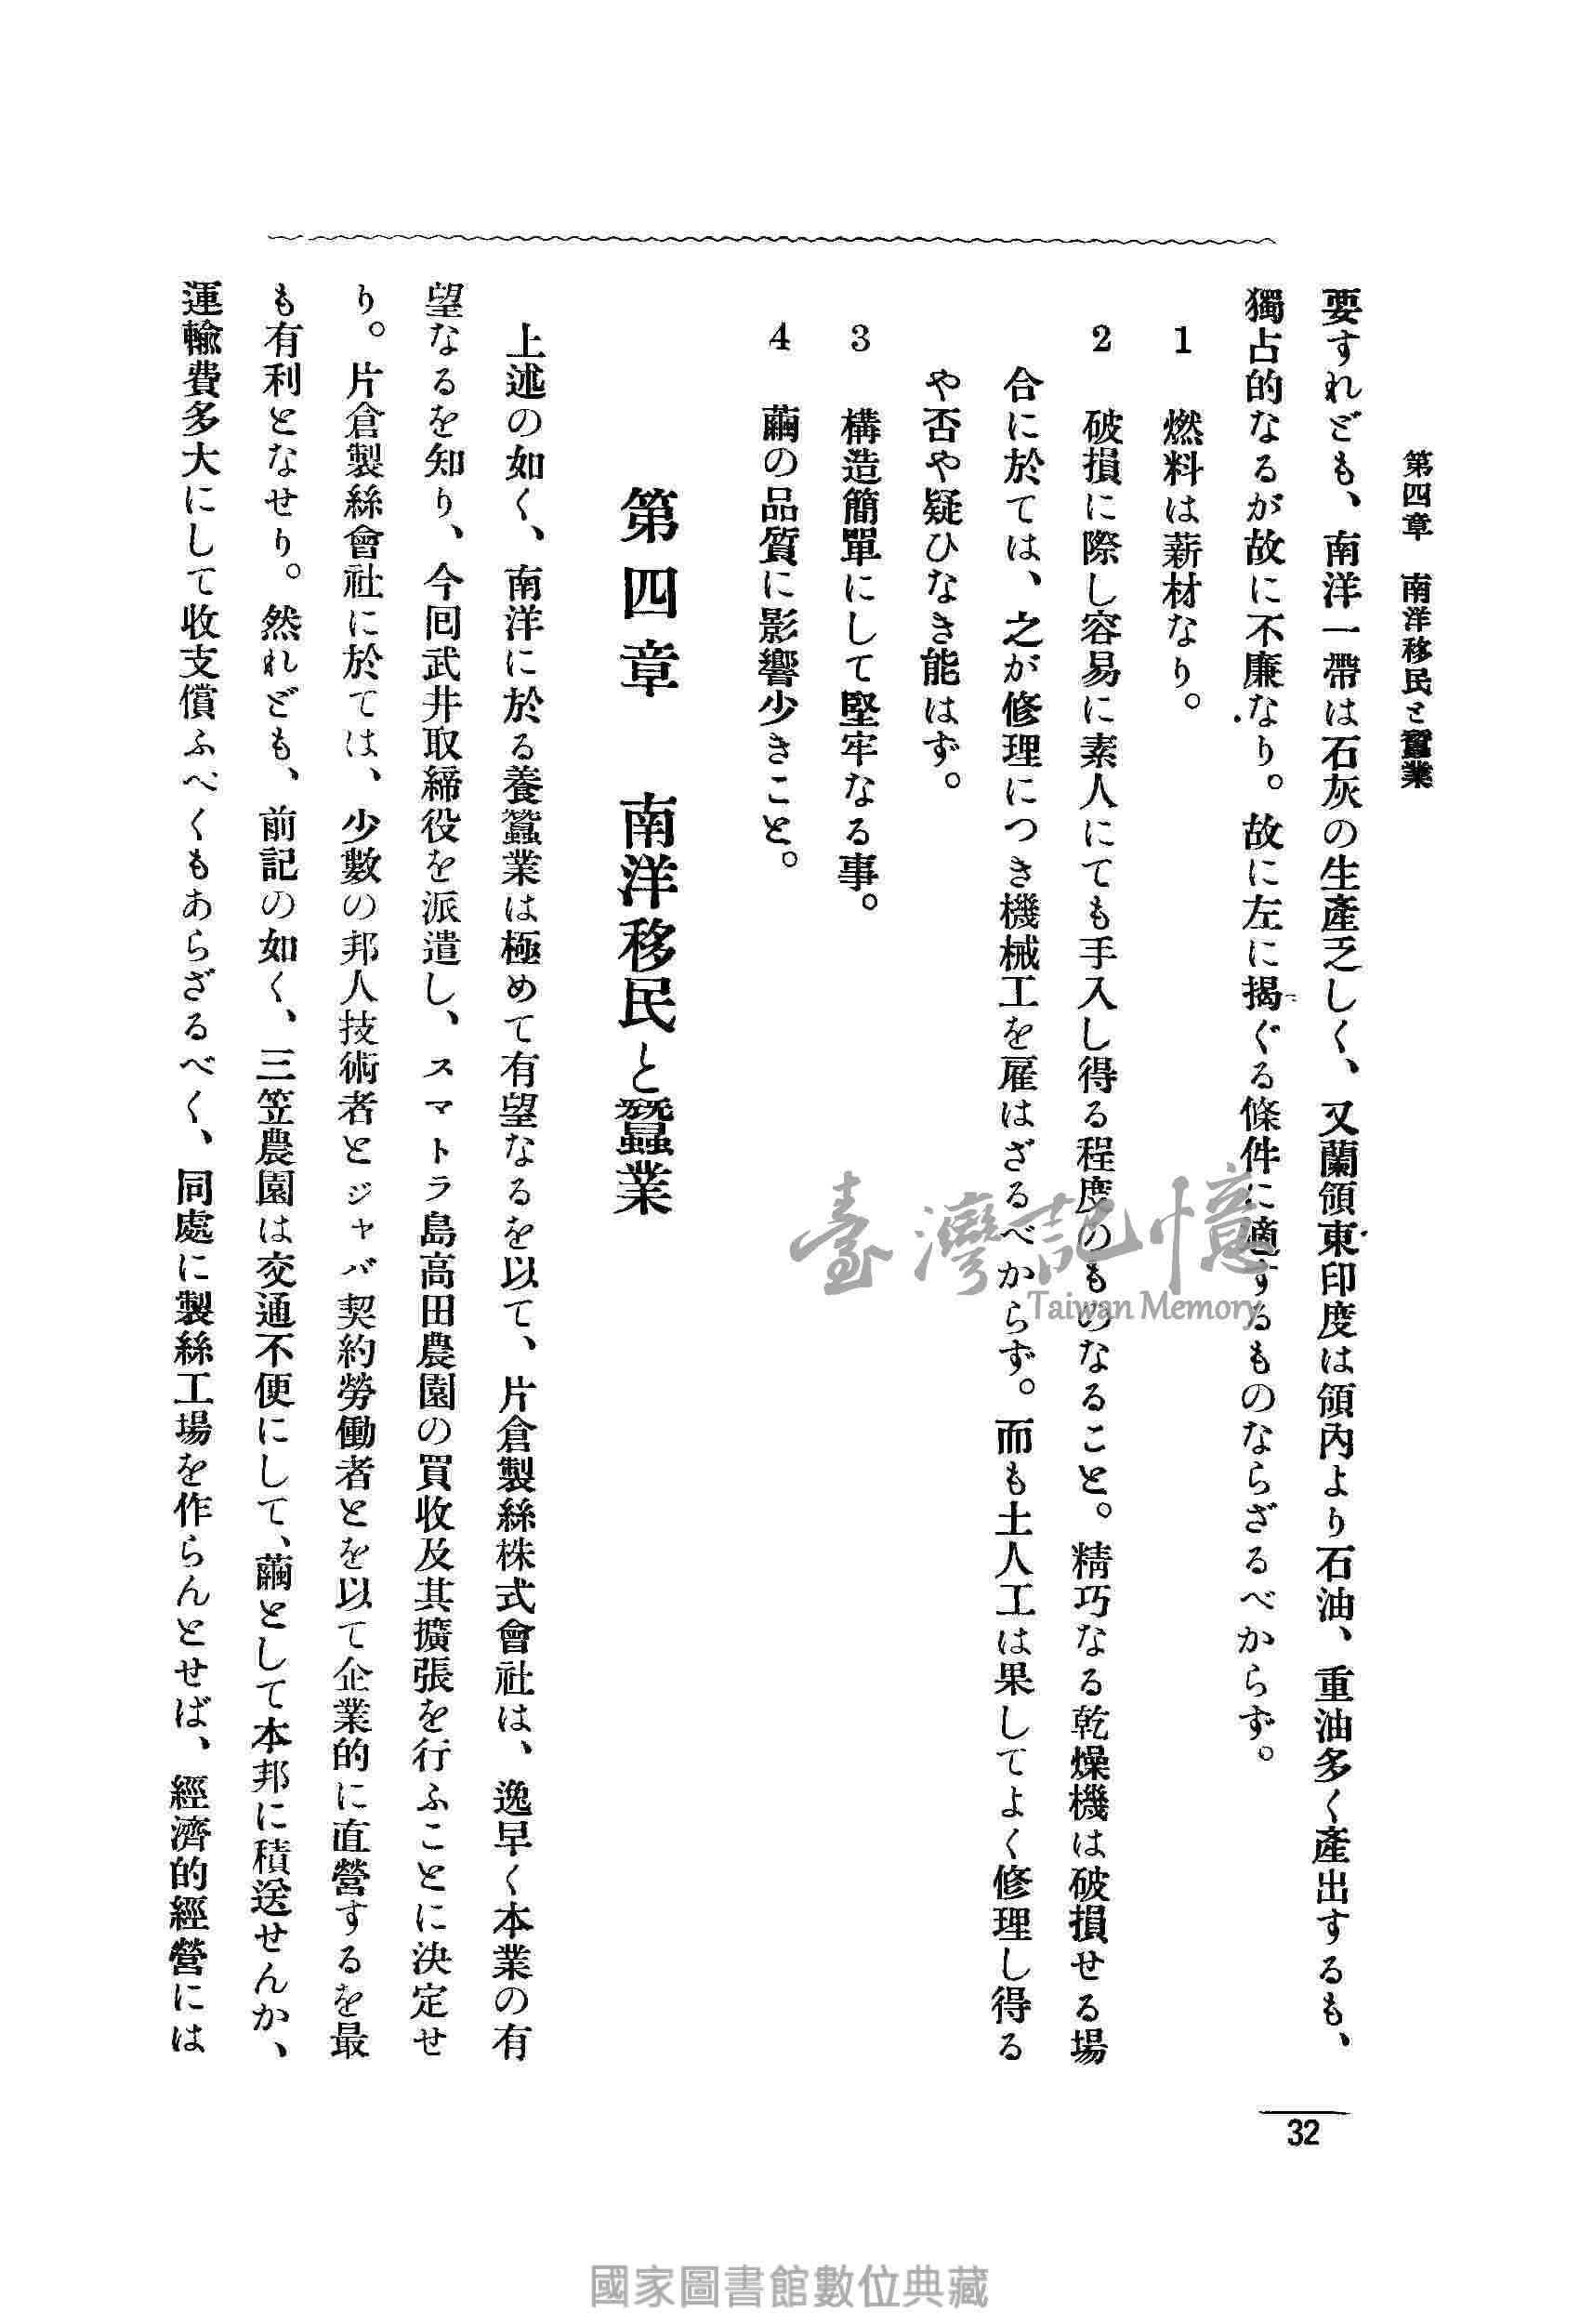 第四章　南洋移民と蠶業
要すれども、南洋一帶は石灰の生產乏しく、又蘭領東印度は領內より石油、重油多く產出するも、
獨占的なるが故に不廉なり。故に左に揭ぐる條件に適するものならざるべからず。
1　燃料は薪材なり。
2　破損に際し容易に素人にても手入し得る程度のものなること。精巧なる乾燥機は破損せる場
合に於ては、之が修理につき機械工を雇はざるべからず。而も土人工は果してよく修理し得る
や否や疑ひなき能はず。
3　構造簡單にして堅牢なる事。
4　繭の品質に影響少きこと。
第四章　南洋移民と蠶業
上述の如く、南洋に於る養蠶業は極めて有望なるを以て、片倉製絲株式會社は、逸早く本業の有
望なるを知り、今回武井取締役を派遣し、スマトラ島高田農園の買收及其擴張を行ふことに決定せ
り。片倉製絲會社に於ては、少數の邦人技術者とジャバ契約勞働者とを以て企業的に直營するを最
も有利となせり。然れども、前記の如く、三笠農園は交通不便にして、繭として本邦に積送せんか、
運輸費多大にして收支償ふべくもあらざるべく、同處に製絲工場を作らんとせば、經濟的經營には
32
臺灣記憶
Taiwan Memory
國家圖書館數位典藏